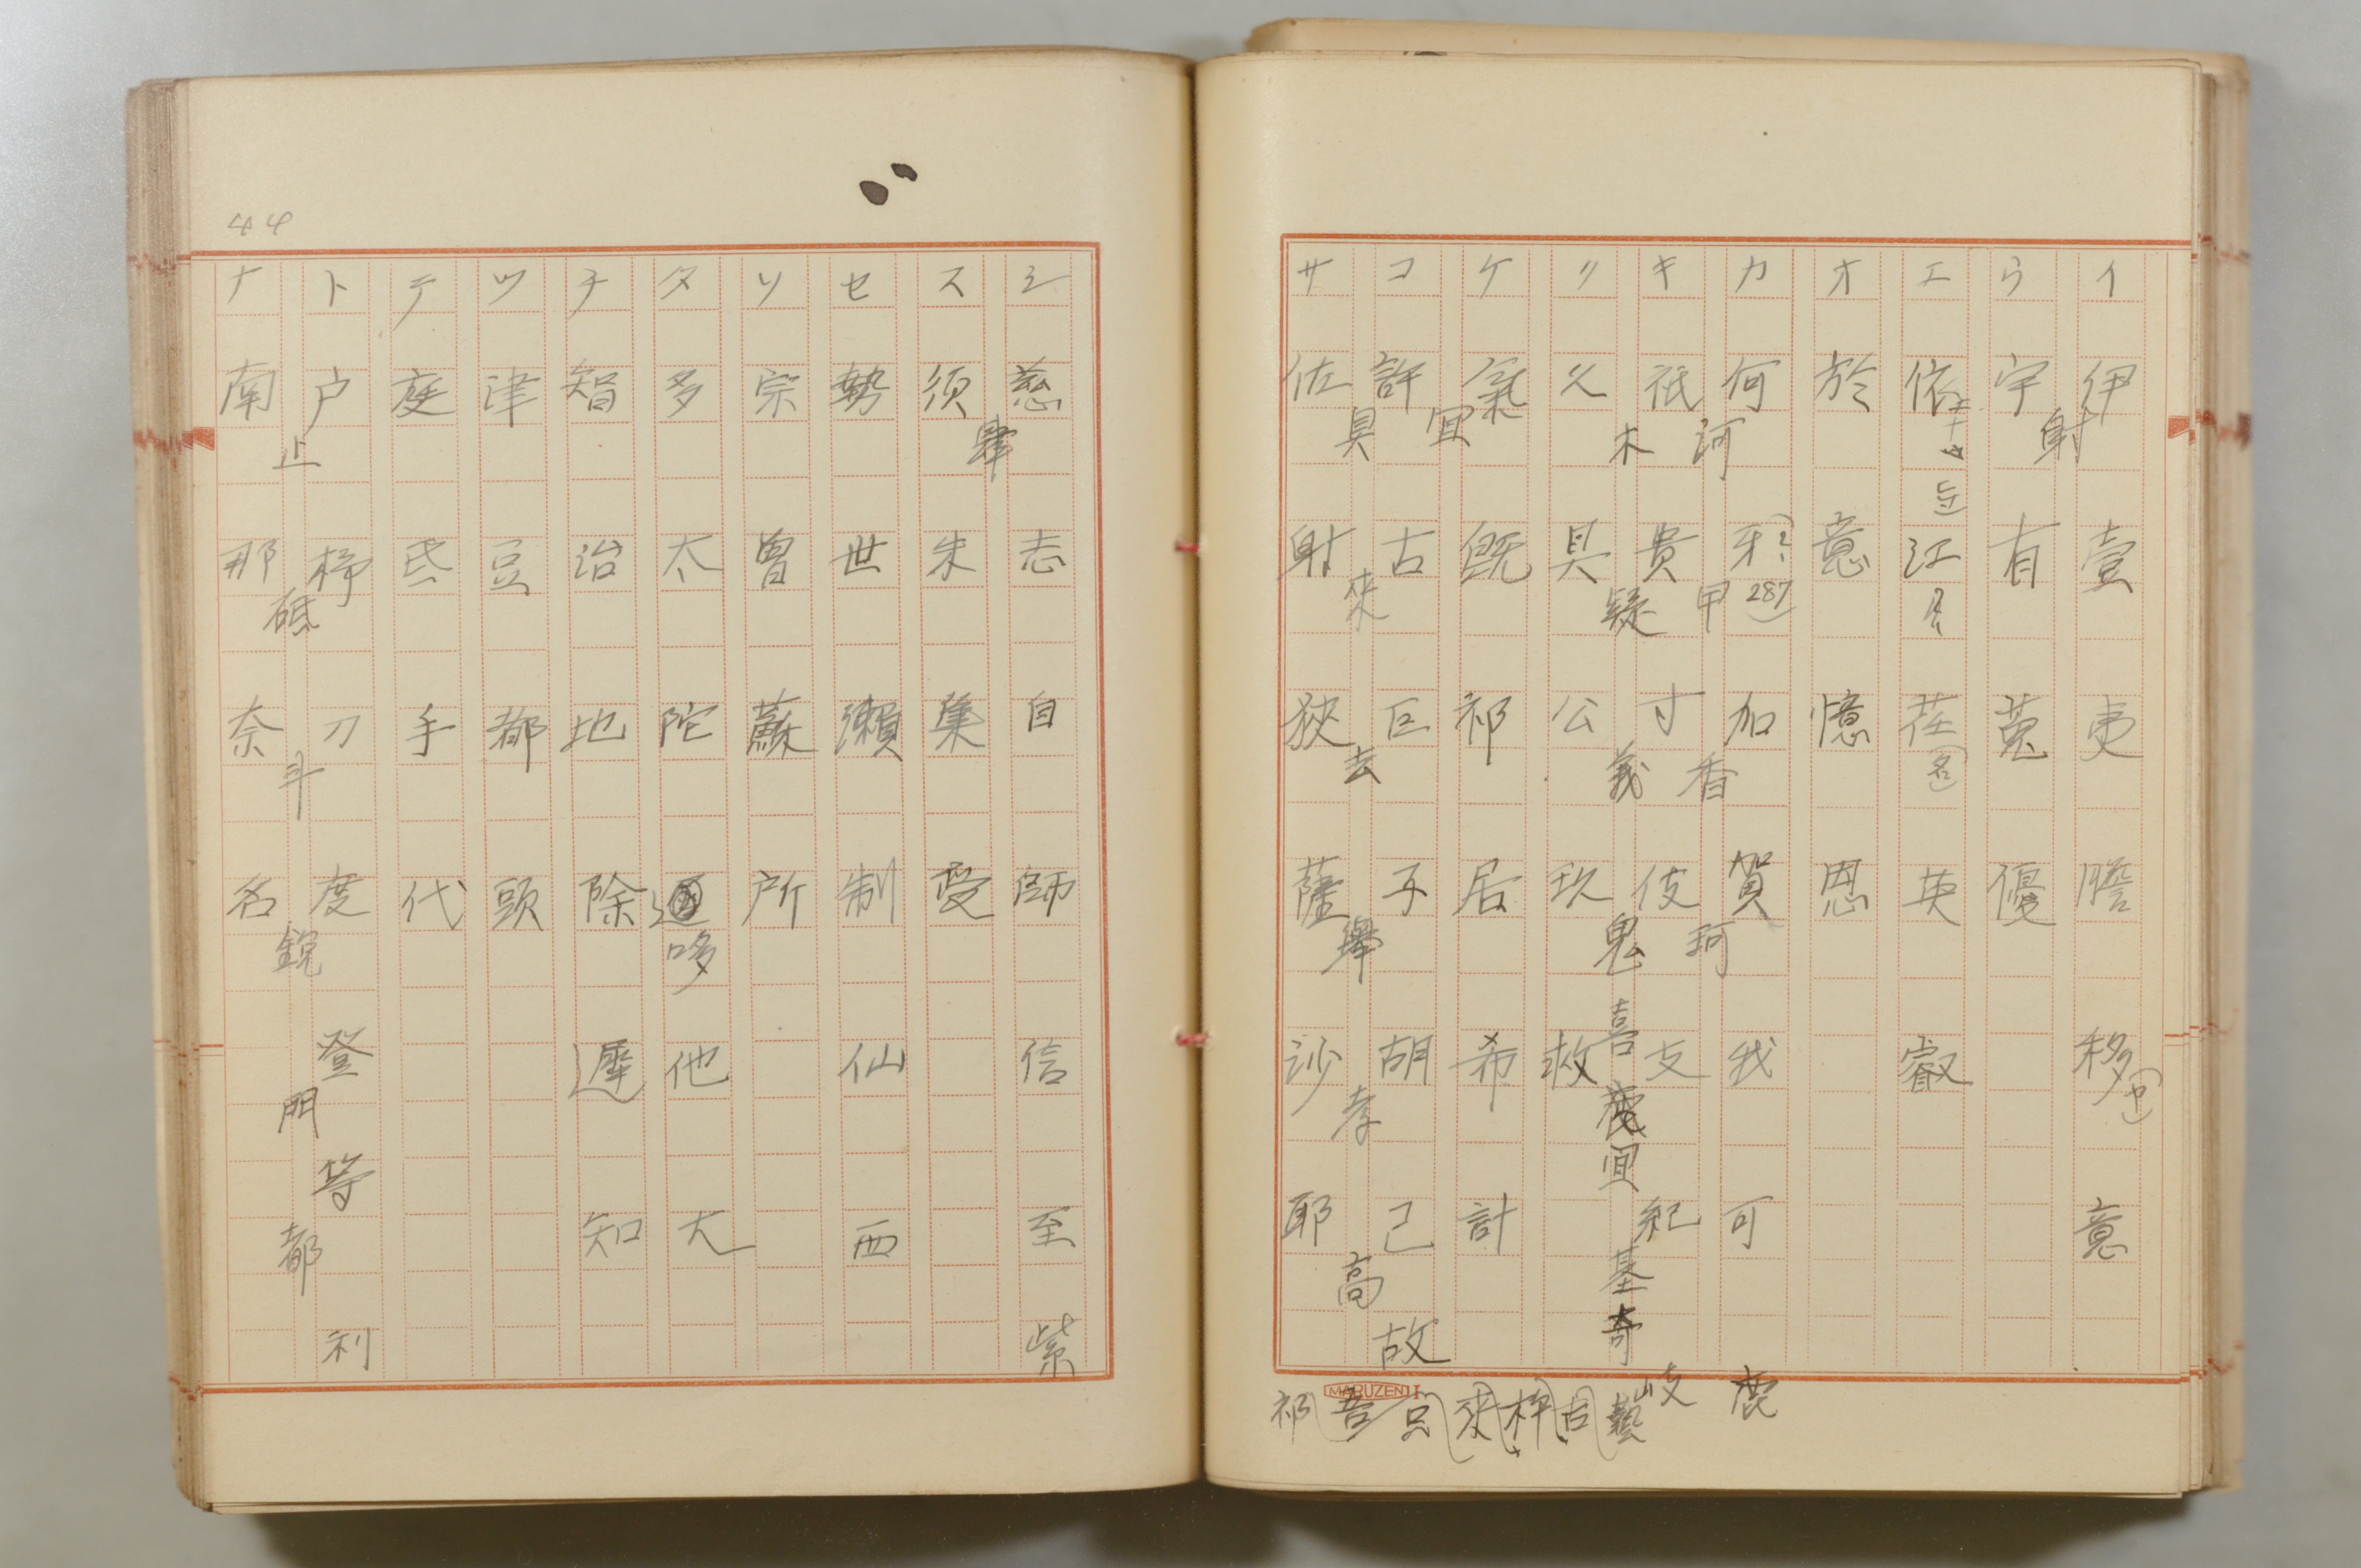 イ 伊 射 壹 夷 膽 移(也) 意
ウ 宇 有 菟 優
エ 依 江 荏(名) 英 叡
オ 於 意 憶 恩
カ 何 河 甲 287 加 香 賀 珂 我 可 鹿
キ 祇 木 貴 疑 寸 義 伎 鬼 喜 支 宜 紀 基 奇 岐 藝
久 具 公 玖 救
ケ 氣 宜 既 祁 居 希 計
コ 許 具 古 來 巨 去 子 擧 胡 孝 己 高 故
サ 佐 射 狹 薩 沙 耶
祁 吾 呂 來 梓 古
MARUZEN I
44
シ 慈 肆 志 自 師 信 至 紫
ス 須 朱 集 受
セ 勢 世 瀬 制 仙 西
ソ 宗 曽 蘇 所
タ 多 太 陀 哆 他 大
チ 智 治 地 除 遲 知
ツ 津 豆 都 頭
テ 庭 氐 手 代
ト 戸 止 杼 砥 刀 斗 度 鋭 登 門 等 都 利
ナ 南 那 奈 名